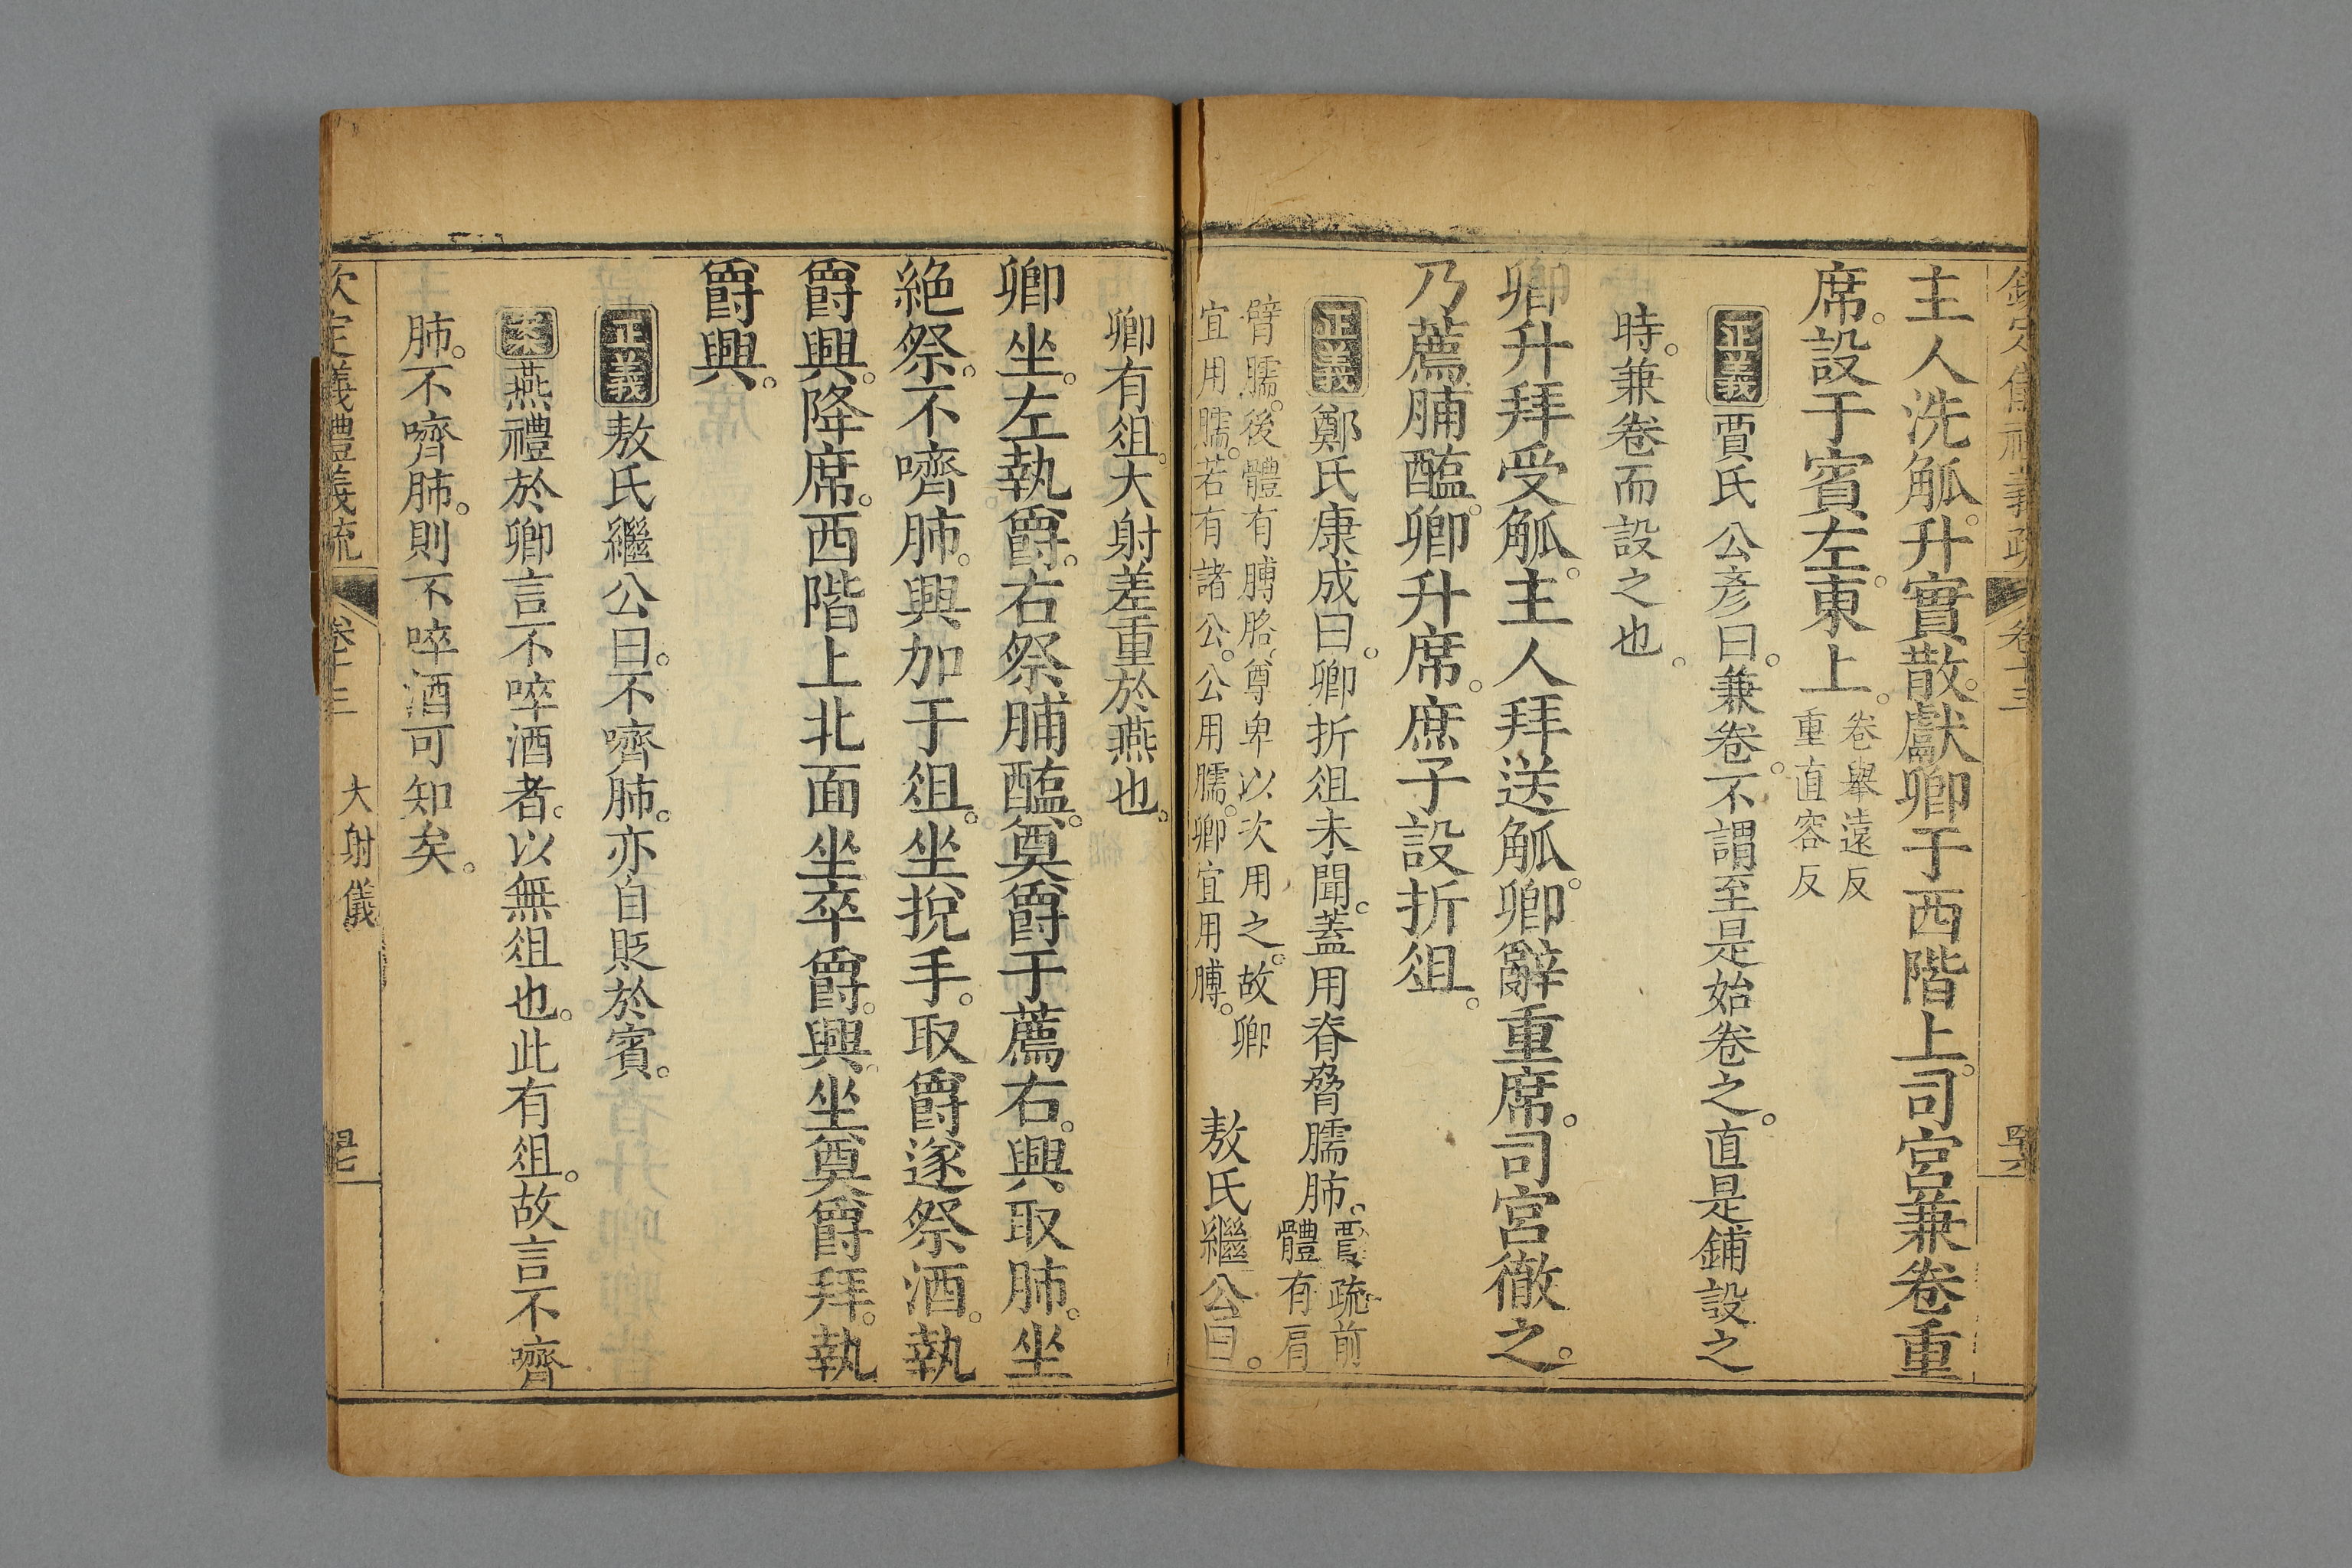 欽定儀禮義疏 卷十三
主人洗觚。升實散。獻卿于西階上。司宮兼卷重
席。設于賓左。東上。卷舉遠反
重直容反
正義 賈氏公彥曰。兼卷。不謂至是始卷之。直是鋪設之
時。兼卷而設之也。
卿升拜受觚。主人拜送觚。卿辭重席。司宮徹之。
乃薦脯醢。卿升席。庶子設折俎。
正義 鄭氏康成曰。卿折俎未聞。蓋用脊脅臑肺。賈疏。前
體有肩
臂臑。後體有膊胳。尊卑以次用之。故卿
宜用臑。若有諸公。公用臑。卿宜用膊。
敖氏繼公曰。
卿有俎。大射差重於燕也。
卿坐。左執爵。右祭脯醢。奠爵于薦右。興取肺。坐
絕祭。不嚌肺。興加于俎。坐挩手。取爵遂祭酒。執
爵興。降席。西階上北面坐卒爵。興。坐奠爵拜。執
爵興。
正義 敖氏繼公曰。不嚌肺。亦自貶於賓。
案 燕禮於卿言不啐酒者。以無俎也。此有俎。故言不嚌
肺。不嚌肺。則不啐酒可知矣。
欽定儀禮義疏 卷十三 大射儀